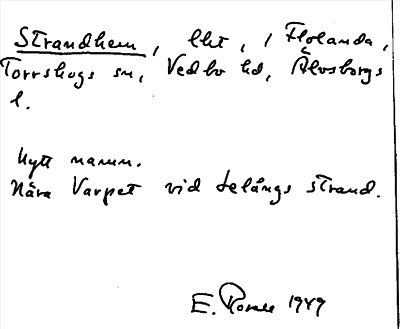 Strandhem, lht, i Flolanda,
Torrskogs sn, Vedbo hd, Älvsborgs
l.
Nytt namn.
Nära Varpet vid Lelångs strand.
E. 1949